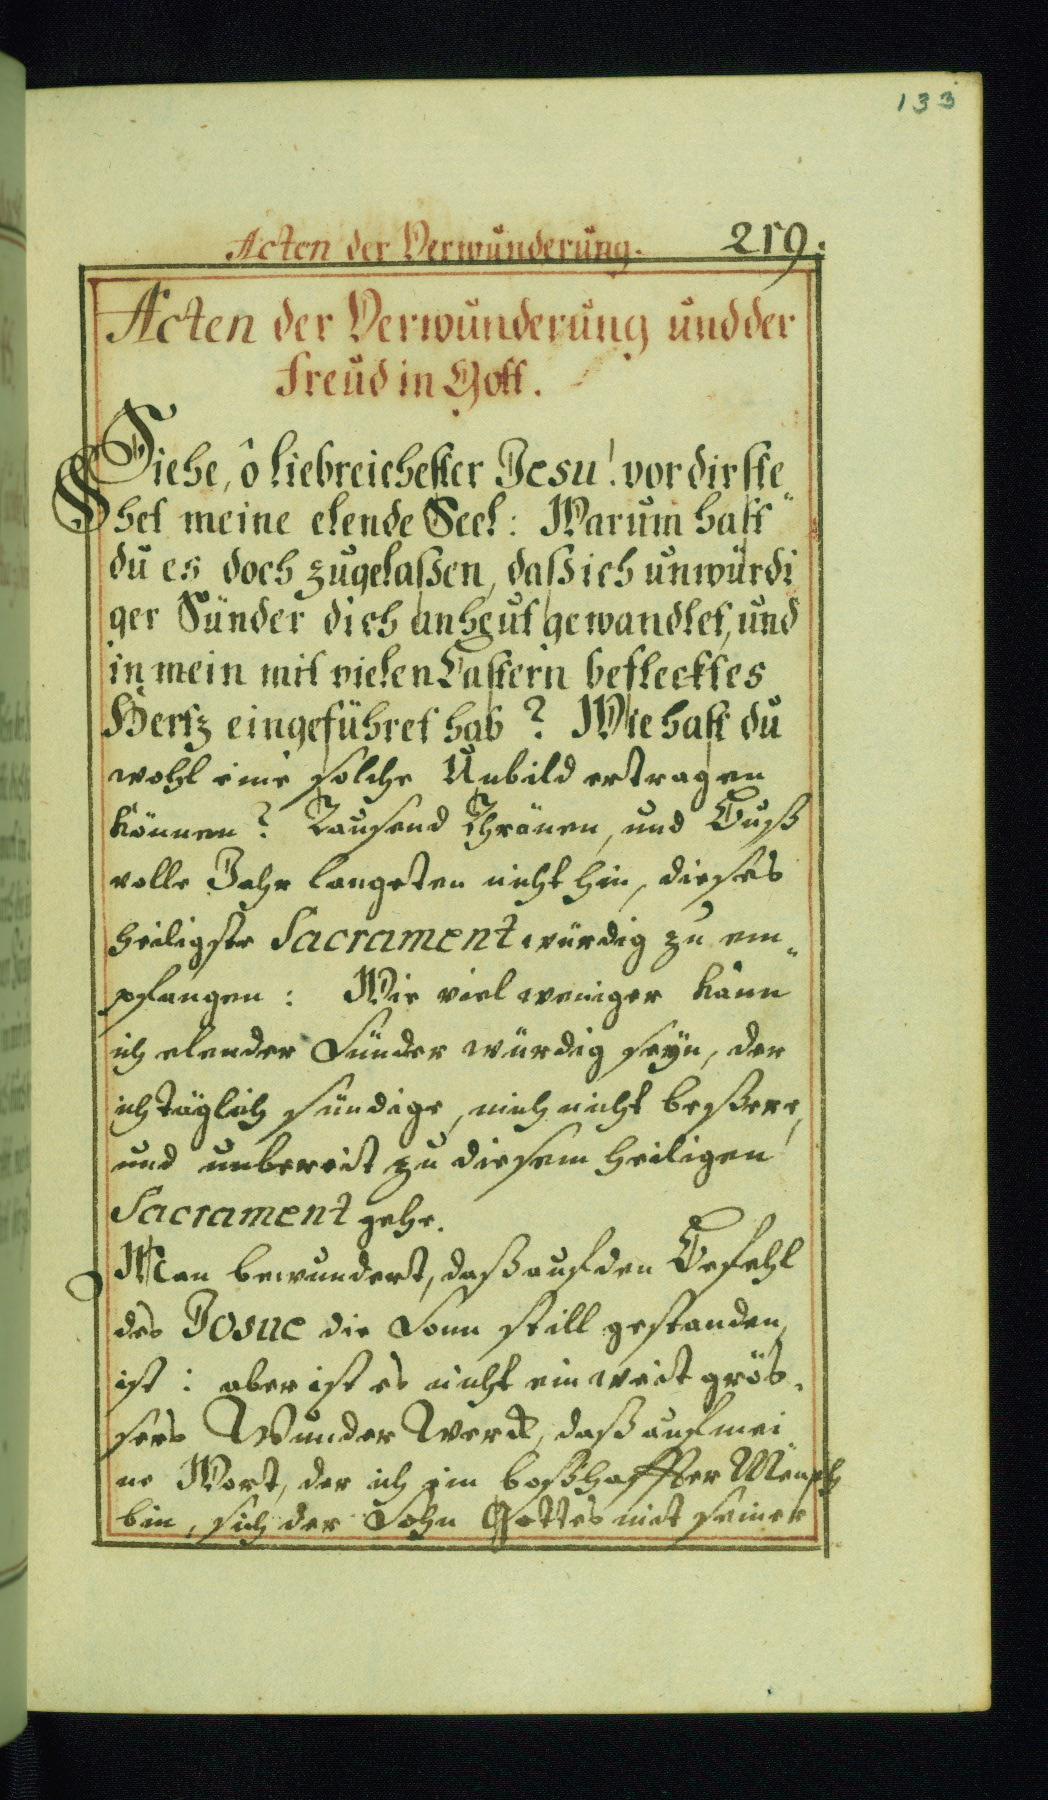 133
Acten der Verwunderung. 259.
Acten der Verwunderung und der
Freud in Gott.
Siehe, ô liebreichester Jesu! vor dir ste„
het meine elende Seel: Warum hast
du es doch zugelaßen, daß ich unwürdi
ger Sünder dich anheut gewandlet, und
in mein mit vielen Lastern beflecktes
Hertz eingeführet hab? Wie hast du
wohl eine solche Unbild ertragen
können? Tausend Thränen, und Buß
volle Jahr langeten nicht hin, dieses
heiligste Sacrament würdig zu em„
pfangen: Wie viel weniger kann
ich elender Sünder würdig seyn, der
ich täglich sündige, mich nicht beßere,
und unbereit zu diesem heiligen
Sacrament gehe.
Man bewundert, daß auf den Befehl
des Josue die Sonn still gestanden
ist: aber ist es nicht ein weit grös„
sers Wunder Werck, daß auf mei
ne Wort, der ich ein boßhaffter Mensch
bin, sich der Sohn Gottes mit seiner